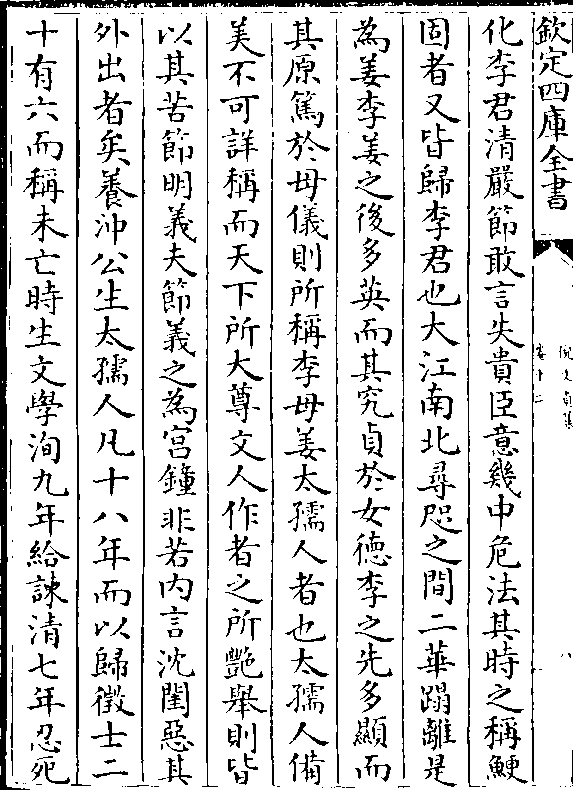 欽定四庫全書
倪文貞集
卷十二
八
化李君清嚴節敢言失貴臣意幾中危法其時之稱鯁
固者又皆歸李君也大江南北尋咫之間二華蹋離是
為姜李姜之後多英而其究貞於女德李之先多顯而
其原篤於母儀則所稱李母姜太孺人者也太孺人備
美不可詳稱而天下所大尊文人作者之所艶舉則皆
以其苦節明義夫節義之為宫鐘非若内言沈閨惡其
外出者矣養沖公生太孺人凡十八年而以歸徵士二
十有六而稱未亡時生文學洵九年給諫清七年忍死